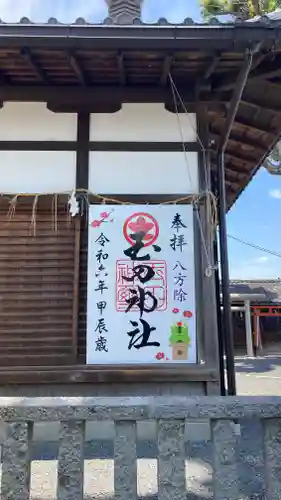 奉拝 八方除
玉田神社
令和六年甲辰歳